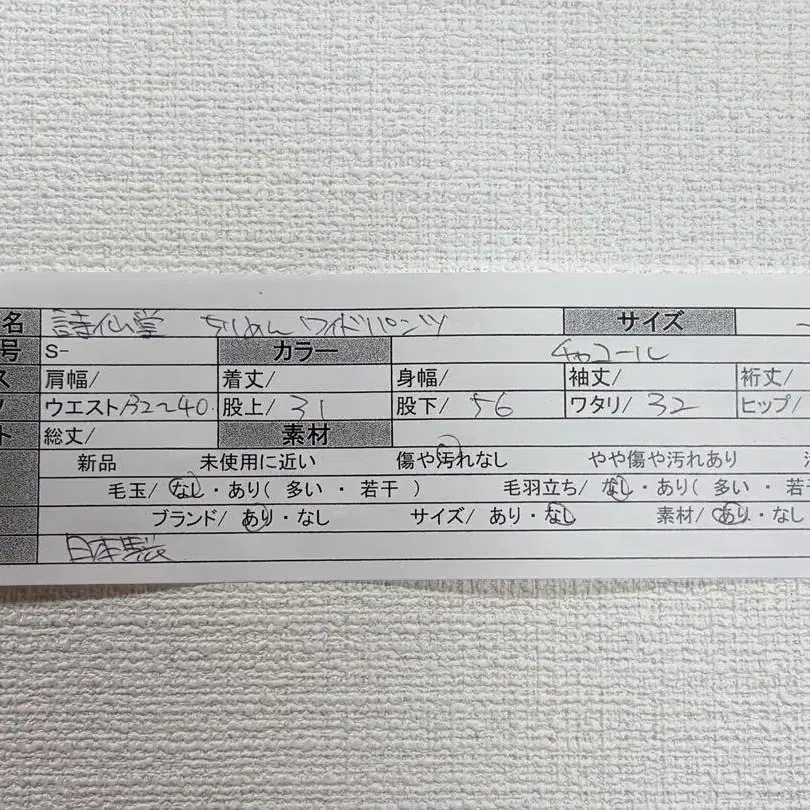 名 詩仙堂 ちりめん ワイドパンツ サイズ
号 S- カラー チャコール
ス 肩幅/ 着丈/ 身幅/ 袖丈/ 裄丈/
ウエスト/32～40 股上/ 31 股下/ 56 ワタリ/ 32 ヒップ/
ト 総丈/ 素材
新品 未使用に近い 傷や汚れなし やや傷や汚れあり
毛玉/ なし・あり( 多い ・ 若干 ) 毛羽立ち/ なし・あり( 多い ・ 若
ブランド/ あり・なし サイズ/ あり・なし 素材/ あり・なし
日本製